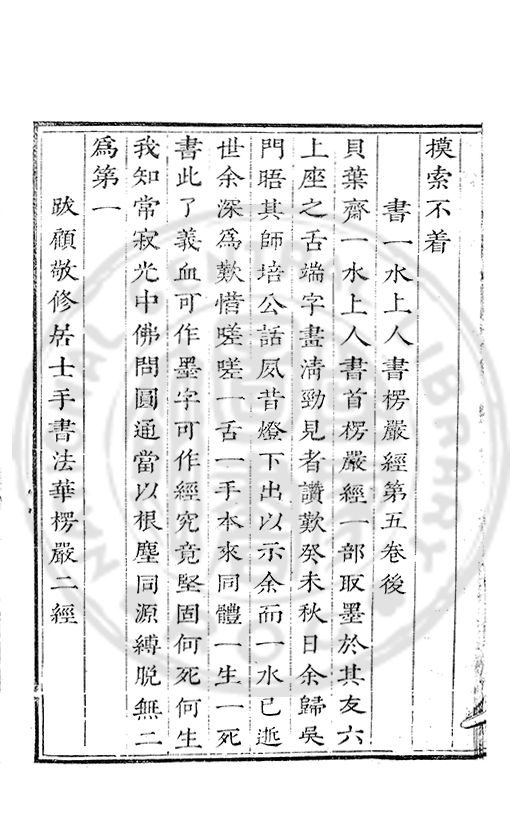 摸索不着
書一水上人書楞嚴經第五卷後
貝葉齋一水上人書首楞嚴經一部取墨於其友六
上座之舌端字畫淸勁見者讚歎癸未秋日余歸吳
門晤其師培公話夙昔燈下出以示余而一水已逝
世余深爲歎惜嗟嗟一舌一手本來同體一生一死
書此了義血可作墨字可作經究竟堅固何死何生
我知常寂光中佛問圓通當以根塵同源縛脫無二
爲第一
跋顧敬修居士手書法華楞嚴二經